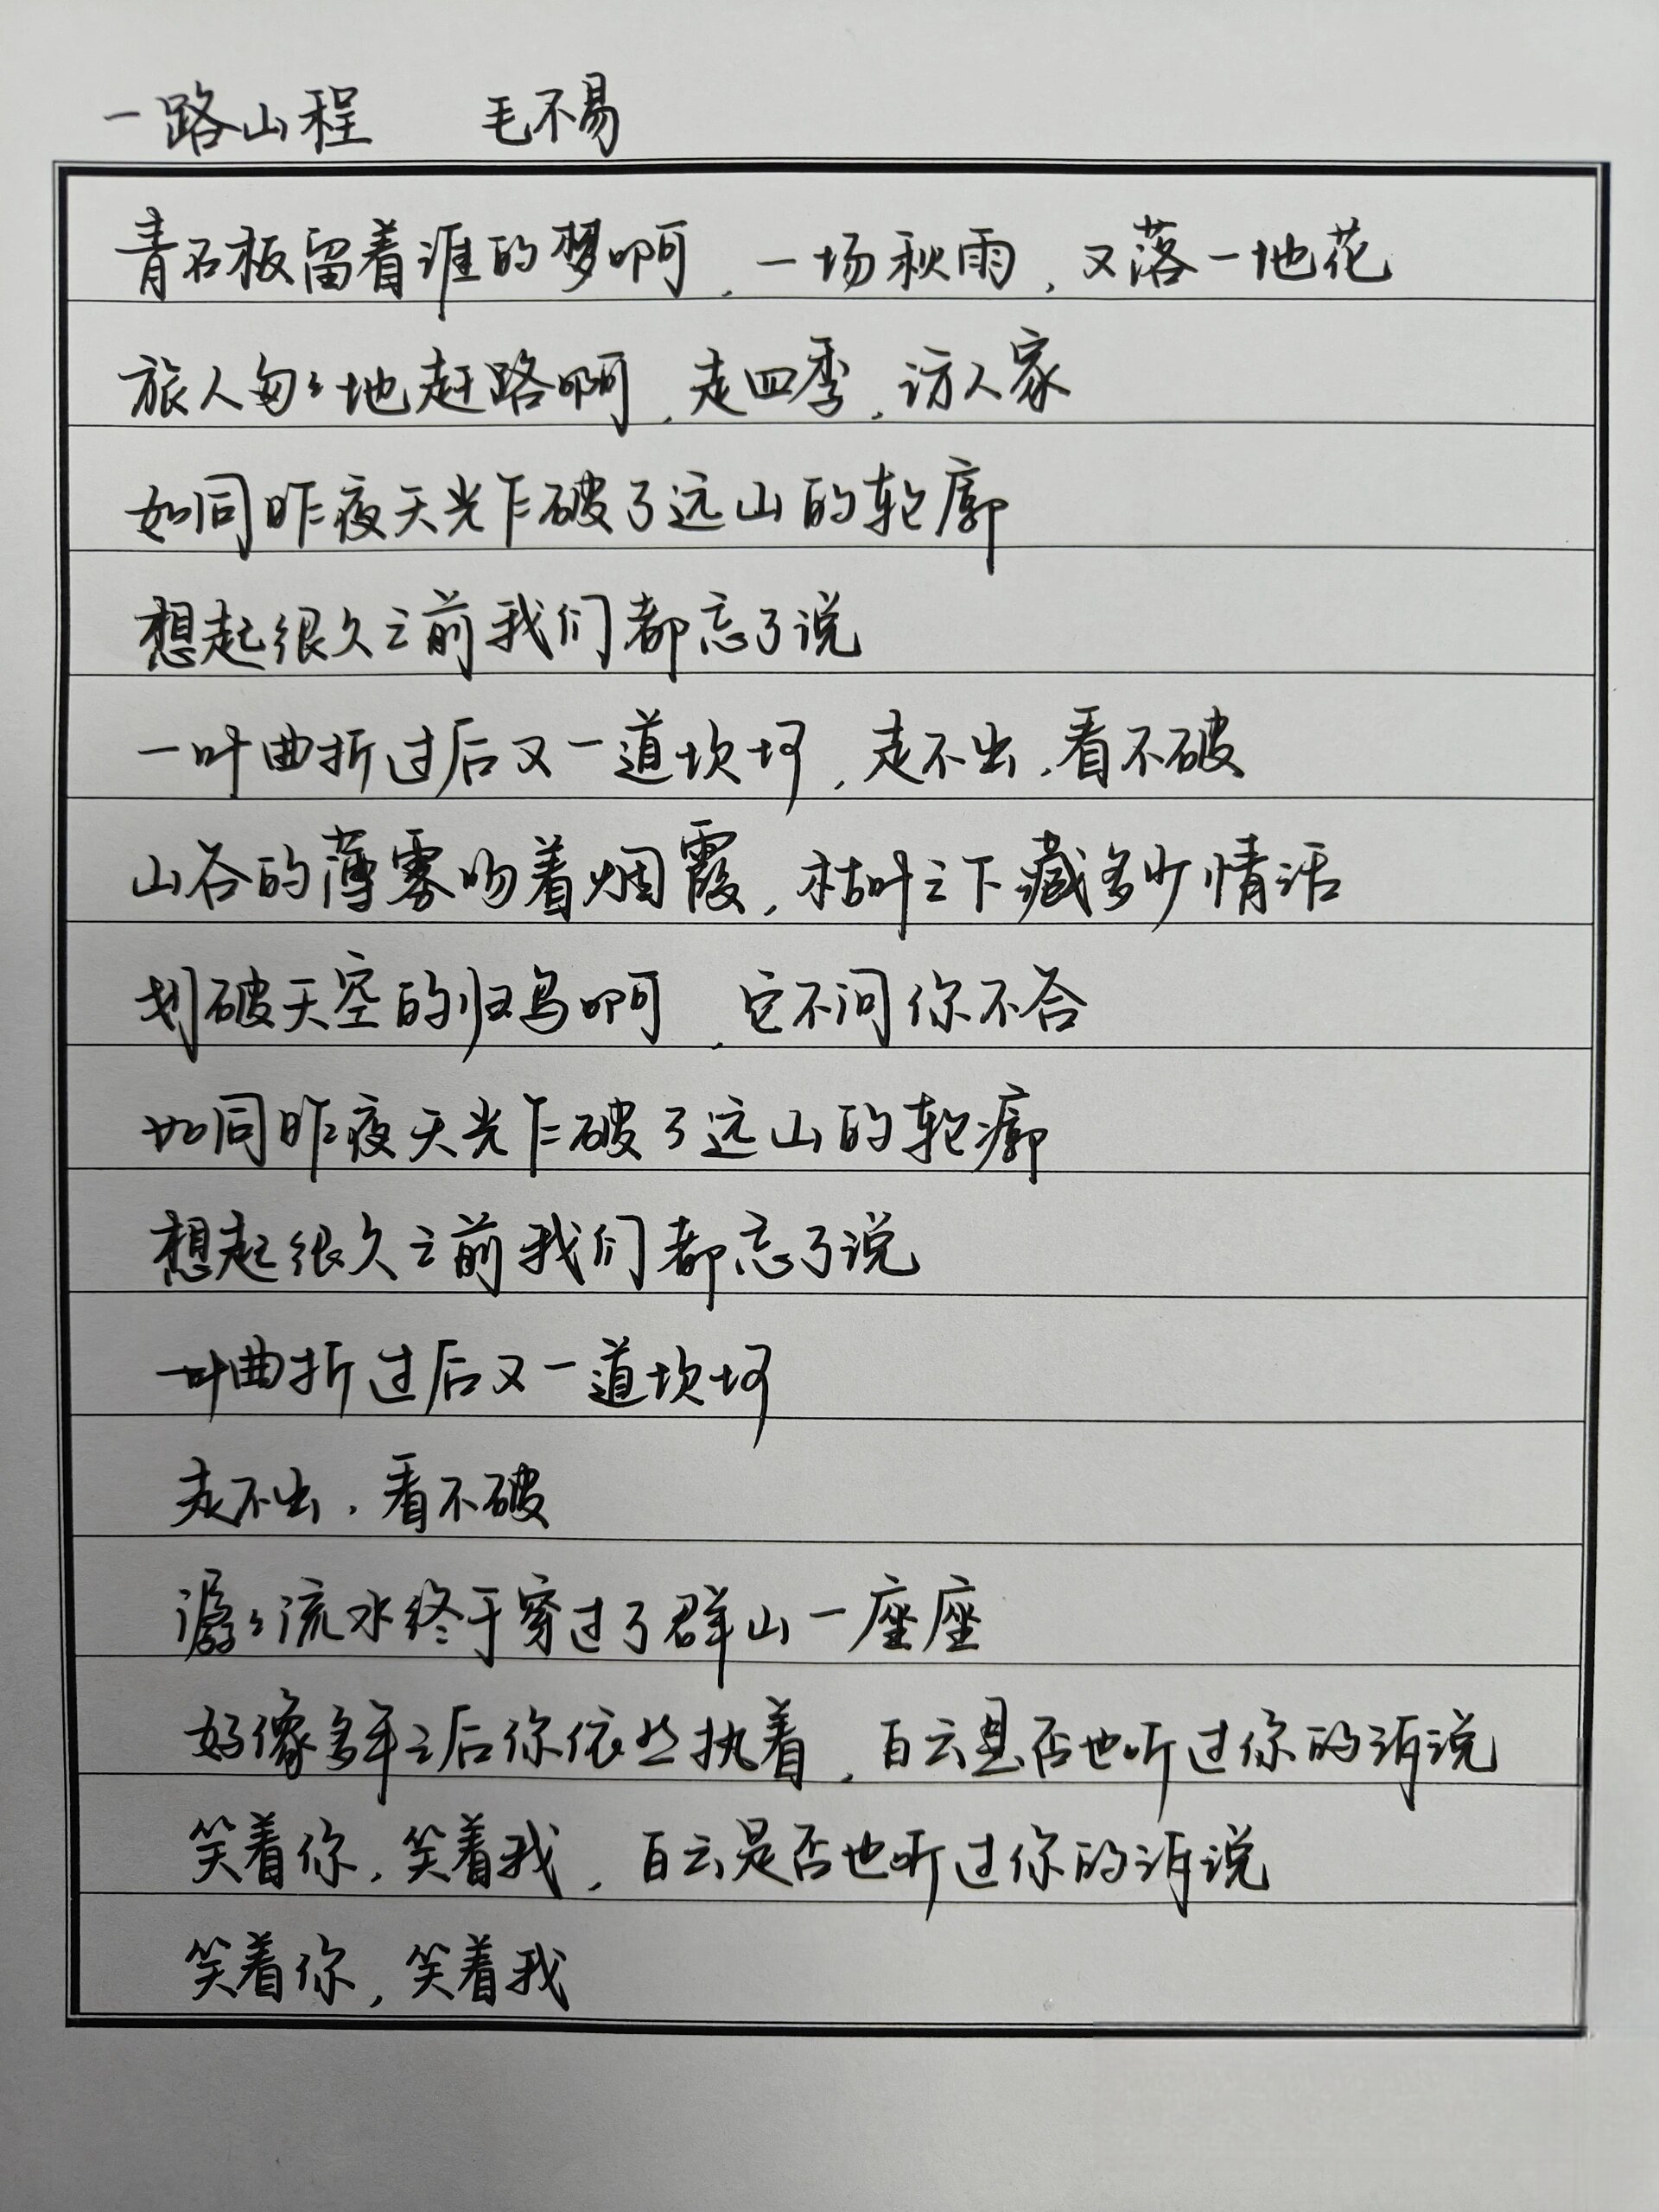 一路山程 毛不易
青石板留着谁的梦啊，一场秋雨，又落一地花
旅人匆々地赶路啊，走四季，访人家
如同昨夜天光乍破了远山的轮廓
想起很久之前我们都忘了说
一叶曲折过后又一道坎坷，走不出，看不破
山谷的薄雾吻着烟霞，枯叶之下藏多少情话
划破天空的归鸟啊，它不问你不答
如同昨夜天光乍破了远山的轮廓
想起很久之前我们都忘了说
一叶曲折过后又一道坎坷
走不出，看不破
潺々流水终于穿过了群山一座座
好像多年之后你依然执着，白云是否也听过你的诉说
笑着你，笑着我，白云是否也听过你的诉说
笑着你，笑着我